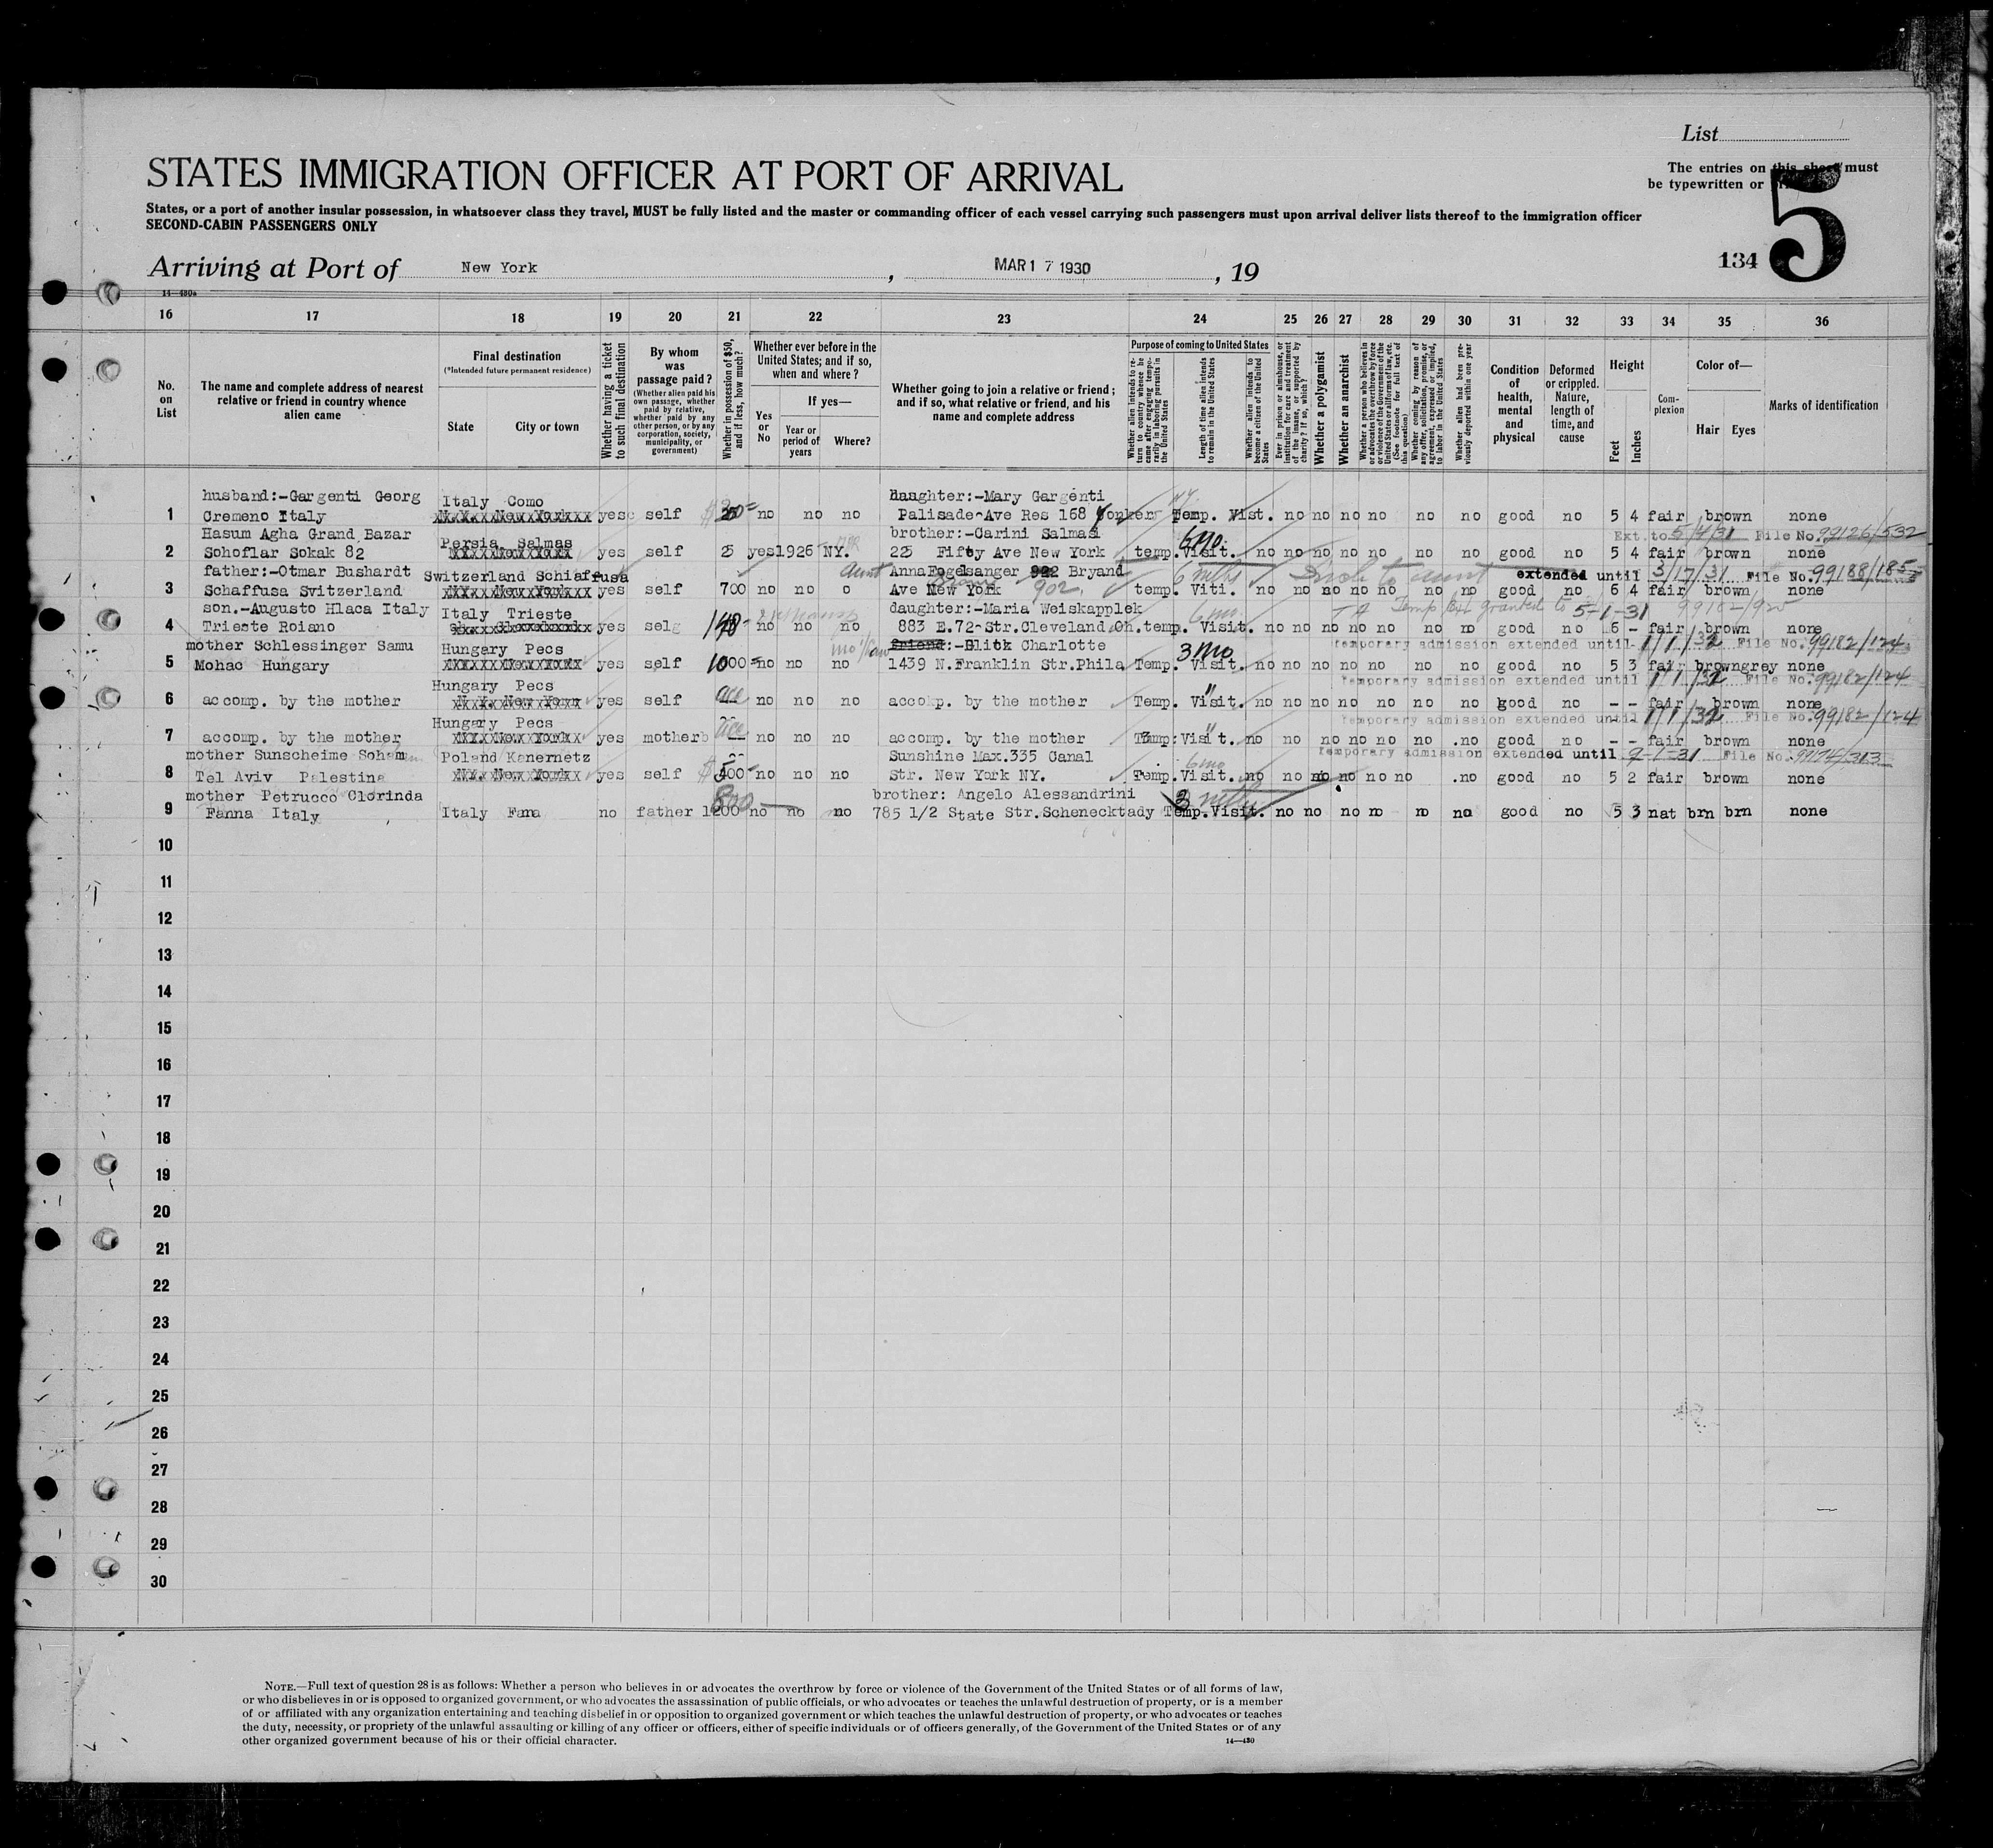 List
STATES IMMIGRATION OFFICER AT PORT OF ARRIVAL
The entries on this sheet must
be typewritten or
5
134
States, or a port of another insular possession, in whatsoever class they travel, MUST be fully listed and the master or commanding officer of each vessel carrying such passengers must upon arrival deliver lists thereof to the immigration officer
SECOND-CABIN PASSENGERS ONLY
Arriving at Port of New York , MAR 1 7 1930 , 19
14—430a
16 17 18 19 20 21 22 23 24 25 26 27 28 29 30 31 32 33 34 35 36
No. on List
The name and complete address of nearest relative or friend in country whence alien came
Final destination
(*Intended future permanent residence)
State
City or town
Whether having a ticket to such final destination
By whom was passage paid?
(Whether alien paid his own passage, whether paid by relative, whether paid by any other person, or by any corporation, society, municipality, or government)
Whether in possession of $50, and if less, how much?
Whether ever before in the United States; and if so, when and where?
Yes or No
If yes—
Year or period of years
Where?
Whether going to join a relative or friend; and if so, what relative or friend, and his name and complete address
Purpose of coming to United States
Whether alien intends to return to country whence he came after engaging temporarily in laboring pursuits in the United States
Length of time alien intends to remain in the United States
Whether alien intends to become a citizen of the United States
Ever in prison or almshouse, or institution for care and treatment of the insane, or supported by charity? If so, which?
Whether a polygamist
Whether an anarchist
Whether a person who believes in or advocates the overthrow by force or violence of the Government of the United States or all forms of law, etc. (See footnote for full text of this question)
Whether coming by reason of any offer, solicitation, promise, or agreement, expressed or implied, to labor in the United States
Whether alien had been previously deported within one year
Condition of health, mental and physical
Deformed or crippled. Nature, length of time, and cause
Height
Feet
Inches
Complexion
Color of—
Hair Eyes
Marks of identification
husband:-Gargenti Georg Italy Como daughter:-Mary Gargenti
1 Cremeno Italy yes self no no no Palisade-Ave Res 168 Yonkers Temp. Vist. no no no no no no good no 5 4 fair brown none
Hasum Agha Grand Bazar Persia Salmas brother:-Carini Salmasi 6 mo. Ext. to 5/4/31 File No. 99126/532
2 Sohoflar Sokak 82 yes self 25 yes 1926 NY. 225 Fifty Ave New York temp. Visit. no no no no no no no good no 5 4 fair brown none
father:-Otmar Bushardt Switzerland Schiaffusa aunt Anna Fogelsanger 922 Bryand 6 mths to aunt extended until 3/17/31 File No. 99188/185
3 Schaffusa Svitzerland yes self 700 no no o Ave New York 902 temp. Viti. no no no no no no no good no 6 4 fair brown none
son.-Augusto Hlaca Italy Italy Trieste daughter:-Maria Weiskapplek 6 mo. Temp Ext granted to 5-1-31
4 Trieste Roiano yes selg no no no 883 E.72-Str.Cleveland,Oh. temp. Visit. no no no no no no no good no 6 - fair brown none
mother Schlessinger Samu Hungary Pecs friend:-Glick Charlotte 3 mo temporary admission extended until 1/1/32 File No. 99182/124
5 Mohac Hungary yes self 1000 no no no 1439 N.Franklin Str.Phila Temp. Visit. no no no no no no no good no 5 3 fair brown grey none
Hungary Pecs temporary admission extended until 1/1/32 File No. 99182/124
6 accomp. by the mother N.Y. New York yes self no no no accokp. by the mother Temp. Visit. no no no no no no no good no - - fair brown none
Hungary Pecs " temporary admission extended until 1/1/32 File No. 99182/124
7 accomp. by the mother yes mother no no no accomp. by the mother Temp. Visit. no no no no no no .no good no - - fair brown none
mother Sunscheime Soham Poland Kanernetz Sunshine Max.335 Canal 6 mo temporary admission extended until 9-1-31 File No.
8 Tel Aviv Palestina yes self 500 no no no Str. New York NY. Temp. Visit. no no no no no no .no good no 5 2 fair brown none
mother Petrucco Clorinda brother: Angelo Alessandrini 3 mths
9 Fanna Italy Italy Fana no father 1200 no no no 785 1/2 State Str.Schenecktady Temp. Visit. no no no no no no good no 5 3 nat brn brn none
10
11
12
13
14
15
16
17
18
19
20
21
22
23
24
25
26
27
28
29
30
NOTE.—Full text of question 28 is as follows: Whether a person who believes in or advocates the overthrow by force or violence of the Government of the United States or of all forms of law,
or who disbelieves in or is opposed to organized government, or who advocates the assassination of public officials, or who advocates or teaches the unlawful destruction of property, or is a member
of or affiliated with any organization entertaining and teaching disbelief in or opposition to organized government or which teaches the unlawful destruction of property, or who advocates or teaches
the duty, necessity, or propriety of the unlawful assaulting or killing of any officer or officers, either of specific individuals or of officers generally, of the Government of the United States or of any
other organized government because of his or their official character.
14—430